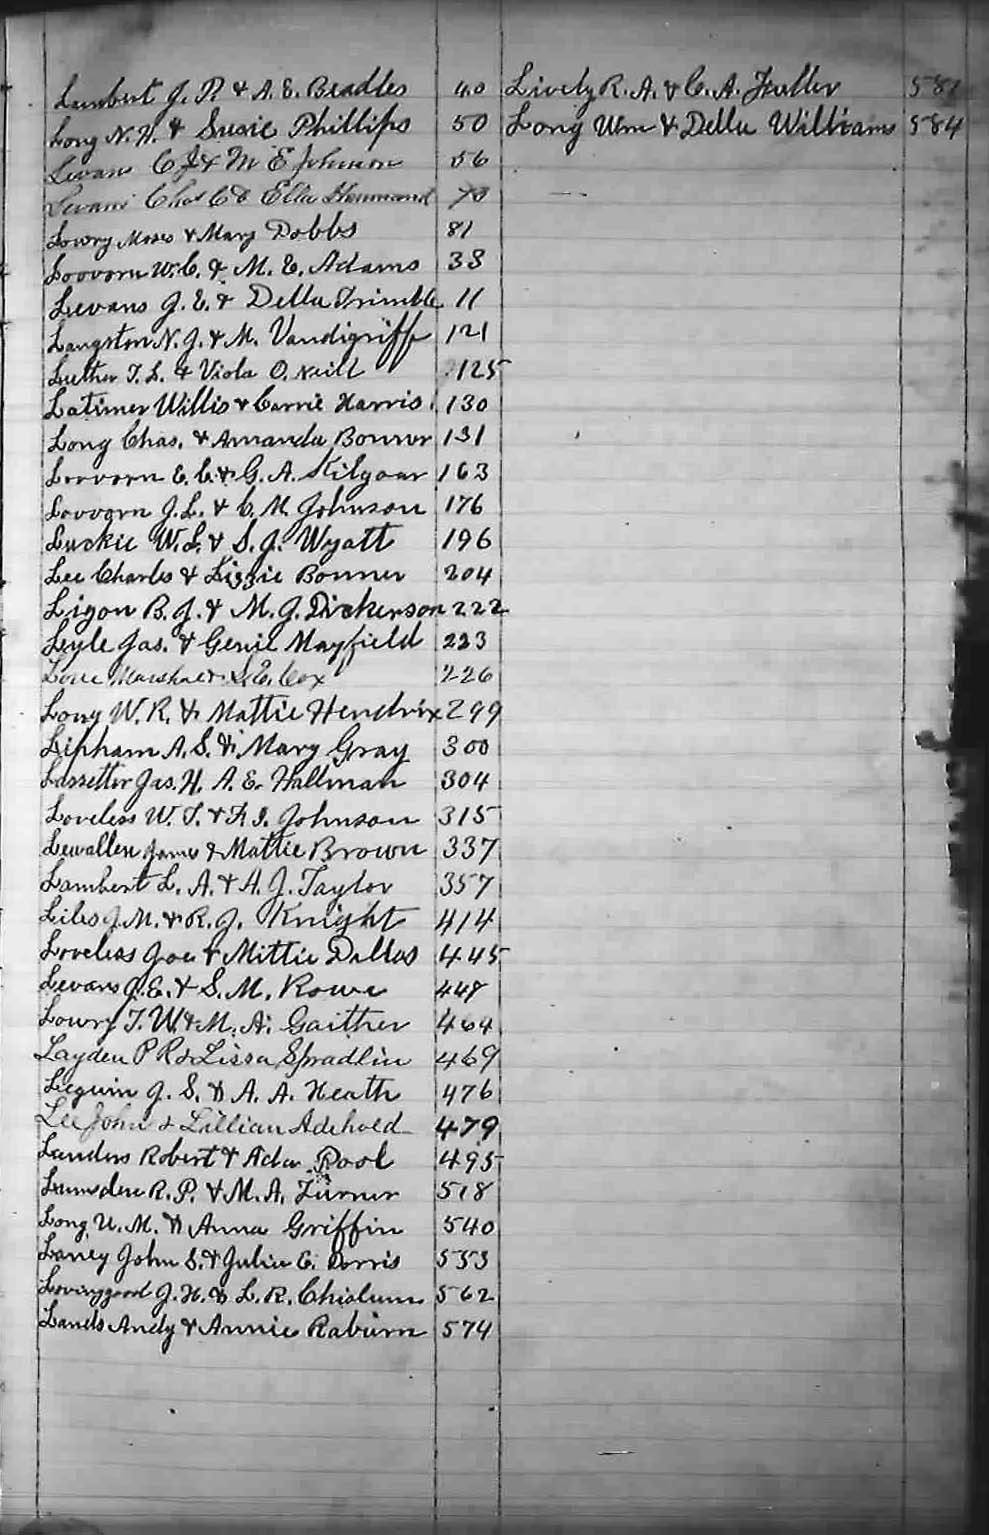 Lambert J. P. & A. E. Beadles 40
Long N. H. & Susie Phillips 50
Levans C J & M E Johnson 56
Levans Chas C & Ella Hammond 70
Lowry Moses & Mary Dobbs 81
Loovorn W. C. & M. E. Adams 33
Levans J. E. & Della Trimble 11
Langston N. J. & M. Vandigriff 121
Luther T. L. & Viola O. Neill 125
Latimer Willis & Carrie Harris 130
Long Chas. & Amanda Bonner 131
Loovorn E. C. & G. A. Kilgoar 163
Lovvorn J. L. & C. M. Johnson 176
Luckie W. L. & S. J. Wyatt 196
Lee Charles & Lizzie Bonner 204
Ligon B. J. & M. J. Dickerson 222
Lyle Jas. & Genie Mayfield 223
Marshal & E. Cox 226
Long W. R. & Mattie Hendrix 299
Lipham A. S. & Mary Gray 300
Lassetter Jas. H. A. E. Hallman 304
Loveless W. T. & F. I. Johnson 315
Lewallen James & Mattie Brown 337
Lambert L. A. & A. J. Taylor 357
Liles J. M. & R. J. Knight 414
Loveless Joe & Mittie Dallas 445
Levans J. E. & S. M. Rowe 448
Lowry T. W. & M. A. Gaither 464
Layden P R & Lissa Spradlin 469
Leguin J. S. & A. A. Heath 476
Lee John & Lillian Adehold 479
Landers Robert & Ada Pool 495
Lumsden R. P. & M. A. Turner 518
Long U. M. & Anna Griffin 540
Laney John S. & Julia E. Dorris 553
Lovinggood J. H. & L. R. Chislum 562
Lands Andy & Annie Raburn 574
Lively R. A. & C. A. Fuller 581
Long Wm & Della Williams 584